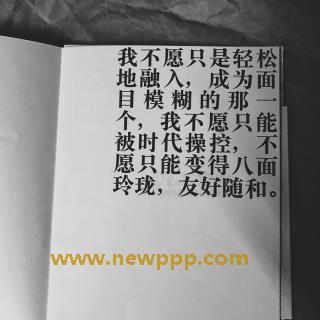 我不愿只是轻松
地融入，成为面
目模糊的那一
个，我不愿只能
被时代操控，不
愿只能变得八面
玲珑，友好随和。
www.newppp.com